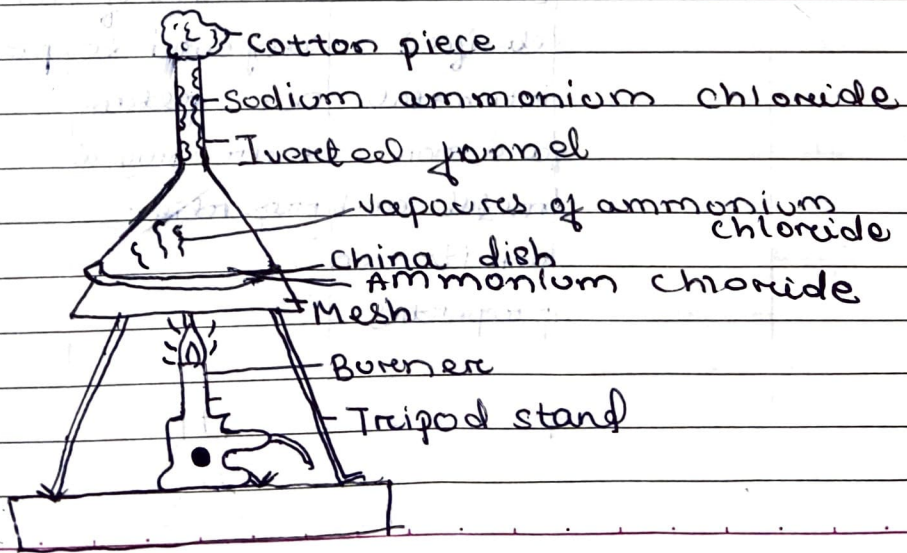 Cotton piece
Sodium ammonium chloride
Iveretoed funnel
vapoures of ammonium
chloride
China dish
Ammonium chloride
Mesh
Burener
Treipod stand